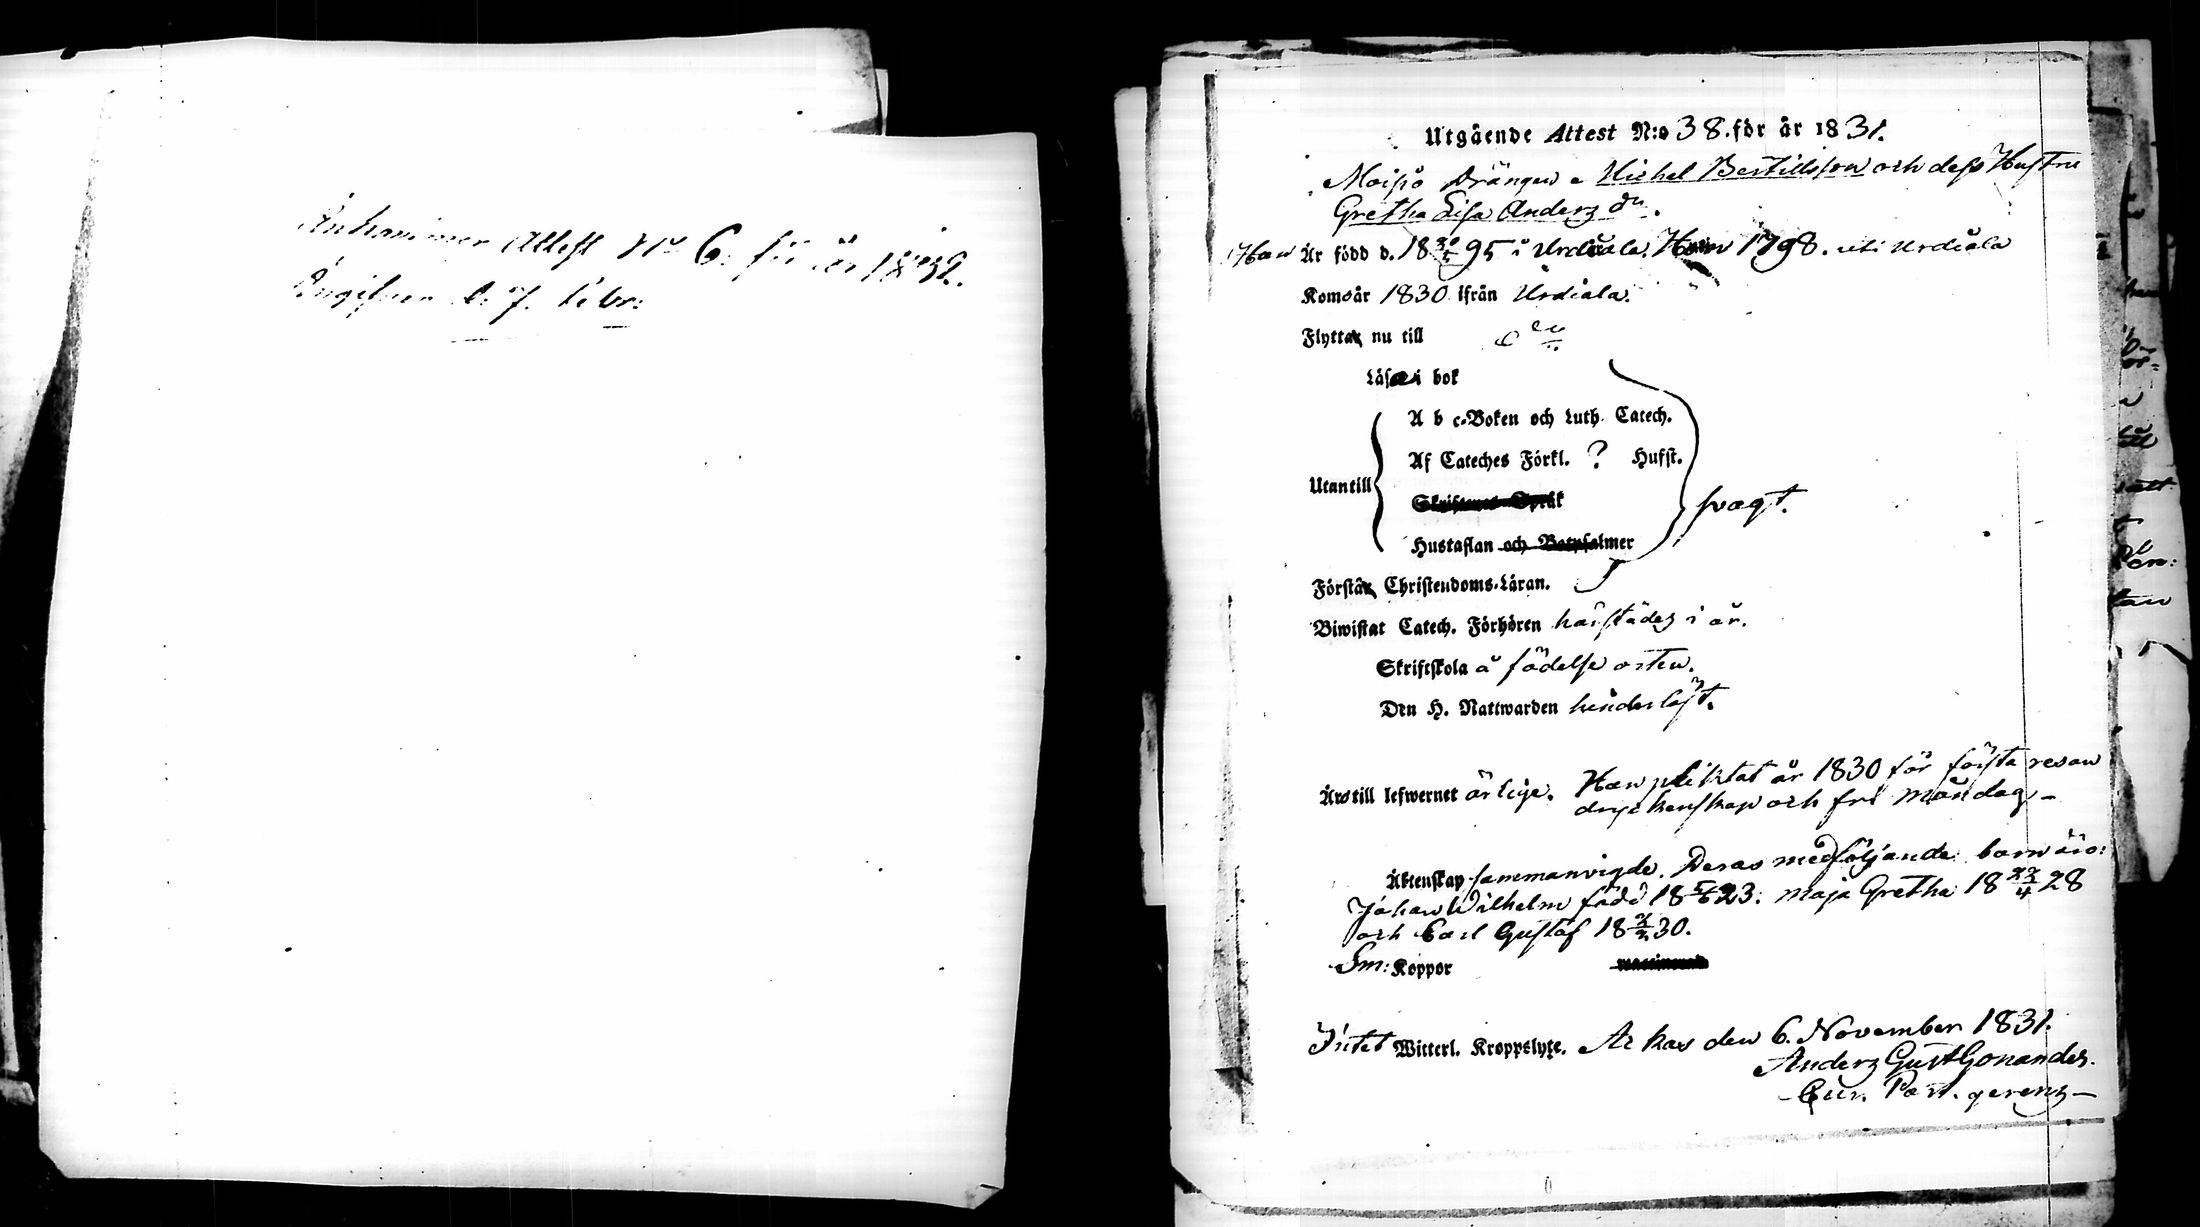 Ankommen Attest No 6. för år 1832.
Ingifven d. 7. Febr:
Utgående Attest N:o 38. för år 1831.
Moisio Drängen Michel Bertillsson och dess Hustru
Gretha Lisa Anders dr.
Han Är född d. 18 30/5 95 i Urdiala. Hon 1798. uti Urdiala
Kom år 1830 ifrån Urdiala.
Flytta nu till
Läsa i bok
A b c-Boken och Luth. Catech.
Af Cateches Förkl. ? Hufst.
Utantill
Skriftenes Språk
svagt.
Hustaflan och Botpsalmer
Förstå Christendoms-Läran.
Biwistat Catech. Förhören härstädes i år.
Skriftskola å födelse orten.
Den H. Nattwarden hinderlöst.
Äro till lefwernet ärlige. Han pliktat år 1830 för första resan
dryckenskap och fri måndag -
Äktenskap sammanvigde. Deras medföljande barn äro:
Johan Wilhelm född 18 5/6 23. Maja Gretha 18 22/4 28
och Carl Gustaf 18 30.
Sm: Koppor
Intet Witterl. Kroppslyte. Akkas den 6. November 1831.
Anders Gust Gonander.
Cur. Past. gerens -